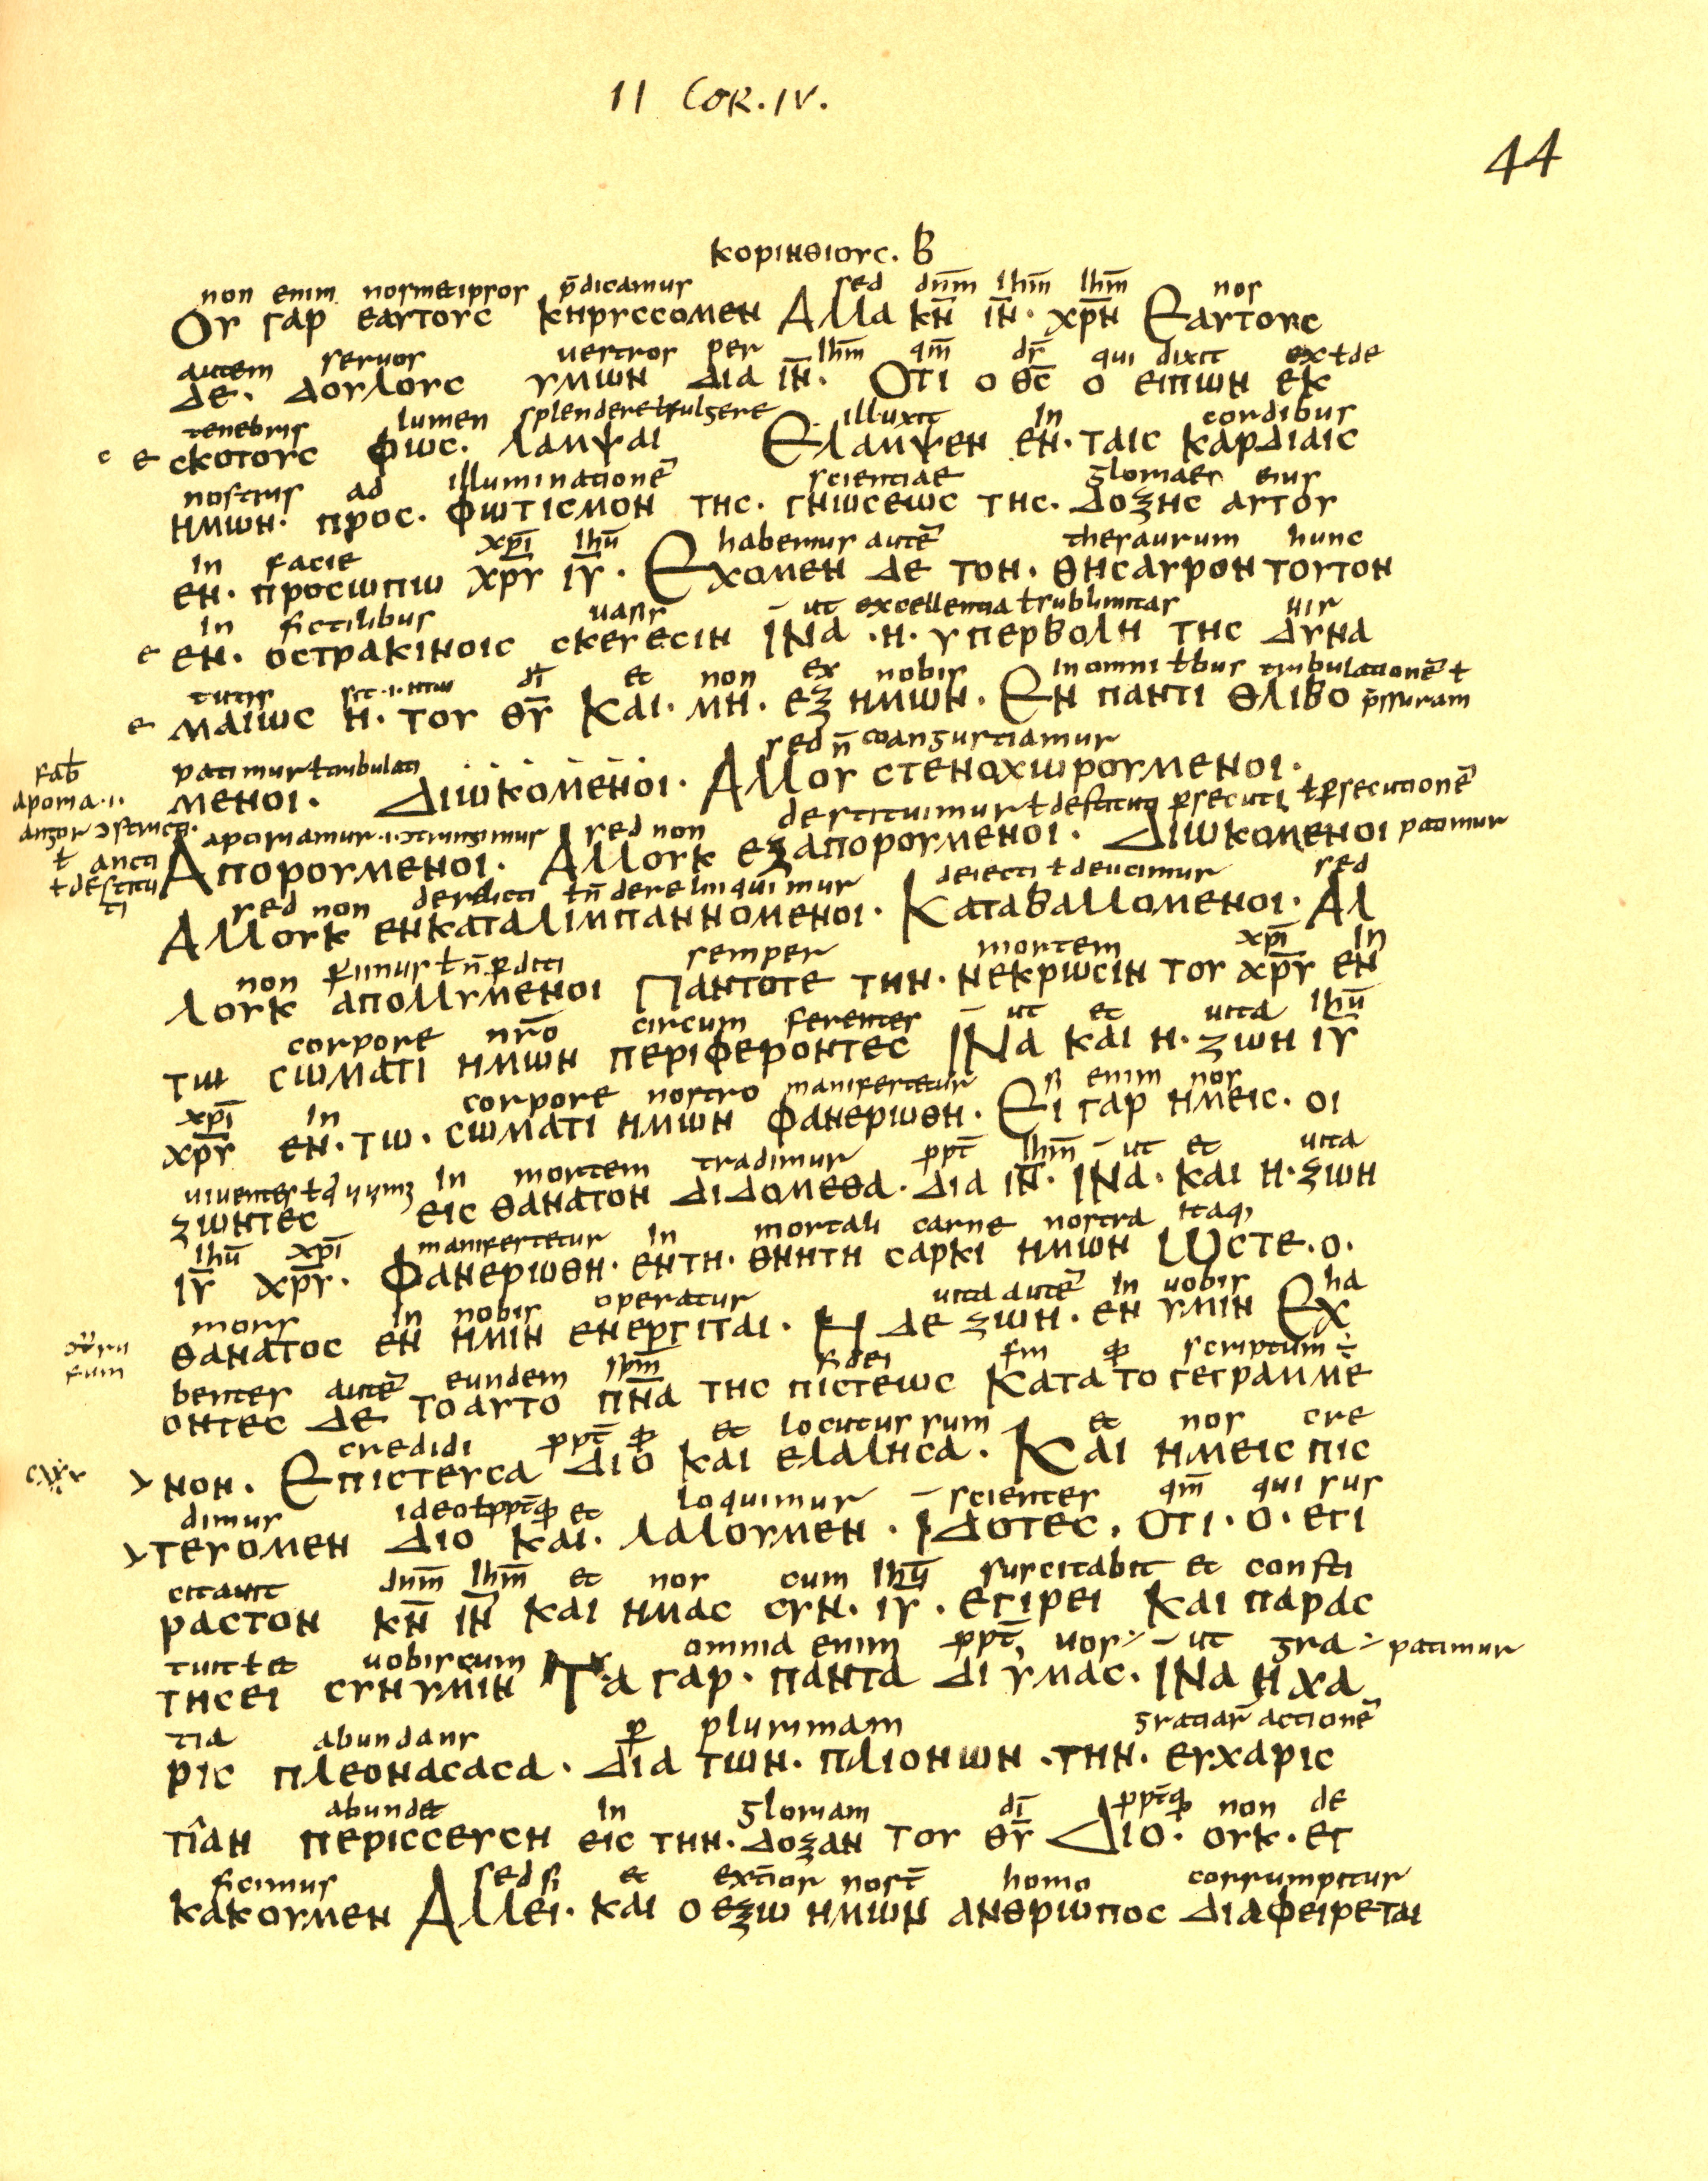 II COR. IV.
44
κορινθιους. β
non enim nosmetipsos p̄dicamus sed dn̄m ihm̄ ihm̄ nos
Ου γαρ εαυτους κηρυσσομεν Αλλα κ̄ν ῑν· χρ̄ν Εαυτους
autem seruos uestros per ihm̄ qm̄ ds̄ qui dixit ex ł de
δε. δουλους υμων δια ῑν. Οτι ο θ̄ς ο ειπων εκ
tenebris lumen splendere ł fulgere illuxit in cordibus
ε σκοτους φως. λαμψαι Ελαμψεν εν. ταις καρδιαις
nostris ad illuminationē scientiae gloriaes eius
ημων. προς. φωτισμον της. γνωσεως της. δοξης αυτου
in facie xp̄i ihū habemus autē thesaurum hunc
εν. προσωπω χρ̄υ ῑυ. Εχομεν δε τον. θησαυρον τουτον
in fictilibus uasis ut excellentia ł sublimitas uir
ε εν. οστρακινοις σκευεσιν ΙΝα .η. υπερβολη της δυνα
tutis sit dī et non ex nobis in omni ł bus tribulationē ł
ε μαιως η. του θ̄υ Και. μη. εξ ημων. Εν παντι θλιβο p̄ssuram
sed n̄ coangustiamur
patimur ł tribulati
μενοι. Διωκομενοι. Αλλου στενοχωρουμενοι.
fab̄
destituimur ł destituti psecuti ł psecutionē
aporiamur
sed non
Απορουμενοι. Αλλουκ εξαπορουμενοι. Διωκομενοι patimur
sed non derelicti ł n̄ derelinquimur deiecti ł deiicimur sed
Αλλουκ ενκαταλιμπαννομενοι. Καταβαλλομενοι. Αλ
non perimus ł n̄ pditi semper mortem xp̄i in
λουκ απολλυμενοι Παντοτε την. νεκρωσιν του χρ̄υ εν
corpore nr̄o circum ferentes ut et uita ihū
τω σωματι ημων περιφεροντες ΙΝα και η. ζωη ῑυ
xp̄i in corpore nostro manifestetur si enim nos
χρ̄υ εν. τω. σωματι ημων φανερωθη. Ει γαρ ημεις. οι
uiuentes in mortem tradimur ppt̄ ihm̄ ut et uita
ζωντες εις θανατον διδομεθα. δια ῑν. ΙΝα. και η. ζωη
ihū xp̄i manifestetur in mortali carne nostra itaq,
ῑυ χρ̄υ. Φανερωθη. εντη. θνητη σαρκι ημων Ωστε. ο.
mors in nobis operatur uita autē in uobis ha
θανατος εν ημιν ενεργιται. Η δε ζωη. εν υμιν Εχ
bentes autē eundem spm̄ fidei scriptum ÷
οντες δε τοαυτο πν̄α της πιστεως Κατα το γεγραμμε
credidi ppt̄ et locutus sum et nos cre
νον. Επιστευσα διο και ελαλησα. Και ημεις πισ
dimus ideo et loquimur scientes qm̄ qui sus
τευομεν διο και. λαλουμεν. Ιδοτες. οτι. ο. εγι
citauit dnm̄ ihm̄ et nos cum ihū suscitabit et consti
ραστον κ̄ν ῑν και ημας συν. ῑυ. εγιρει Και παρασ
tuit ł et uobiscum omnia enim ppt̄ uos ut gra patimur
τησει συνυμιν Τα γαρ. παντα δι υμας. ΙΝα η χα
tia abundans p plurimam gratiar̄ actionē
ρις πλεονασασα. δια των. πλιονων .την. ευχαρις
abundet in gloriam dī non de
τιαν περισσευση εις την. δοξαν του θ̄υ Διο. ουκ. εγ
ficimus sed si et homo corrumpitur
κακουμεν Αλλει. και ο εξω ημων ανθρωπος διαφειρεται